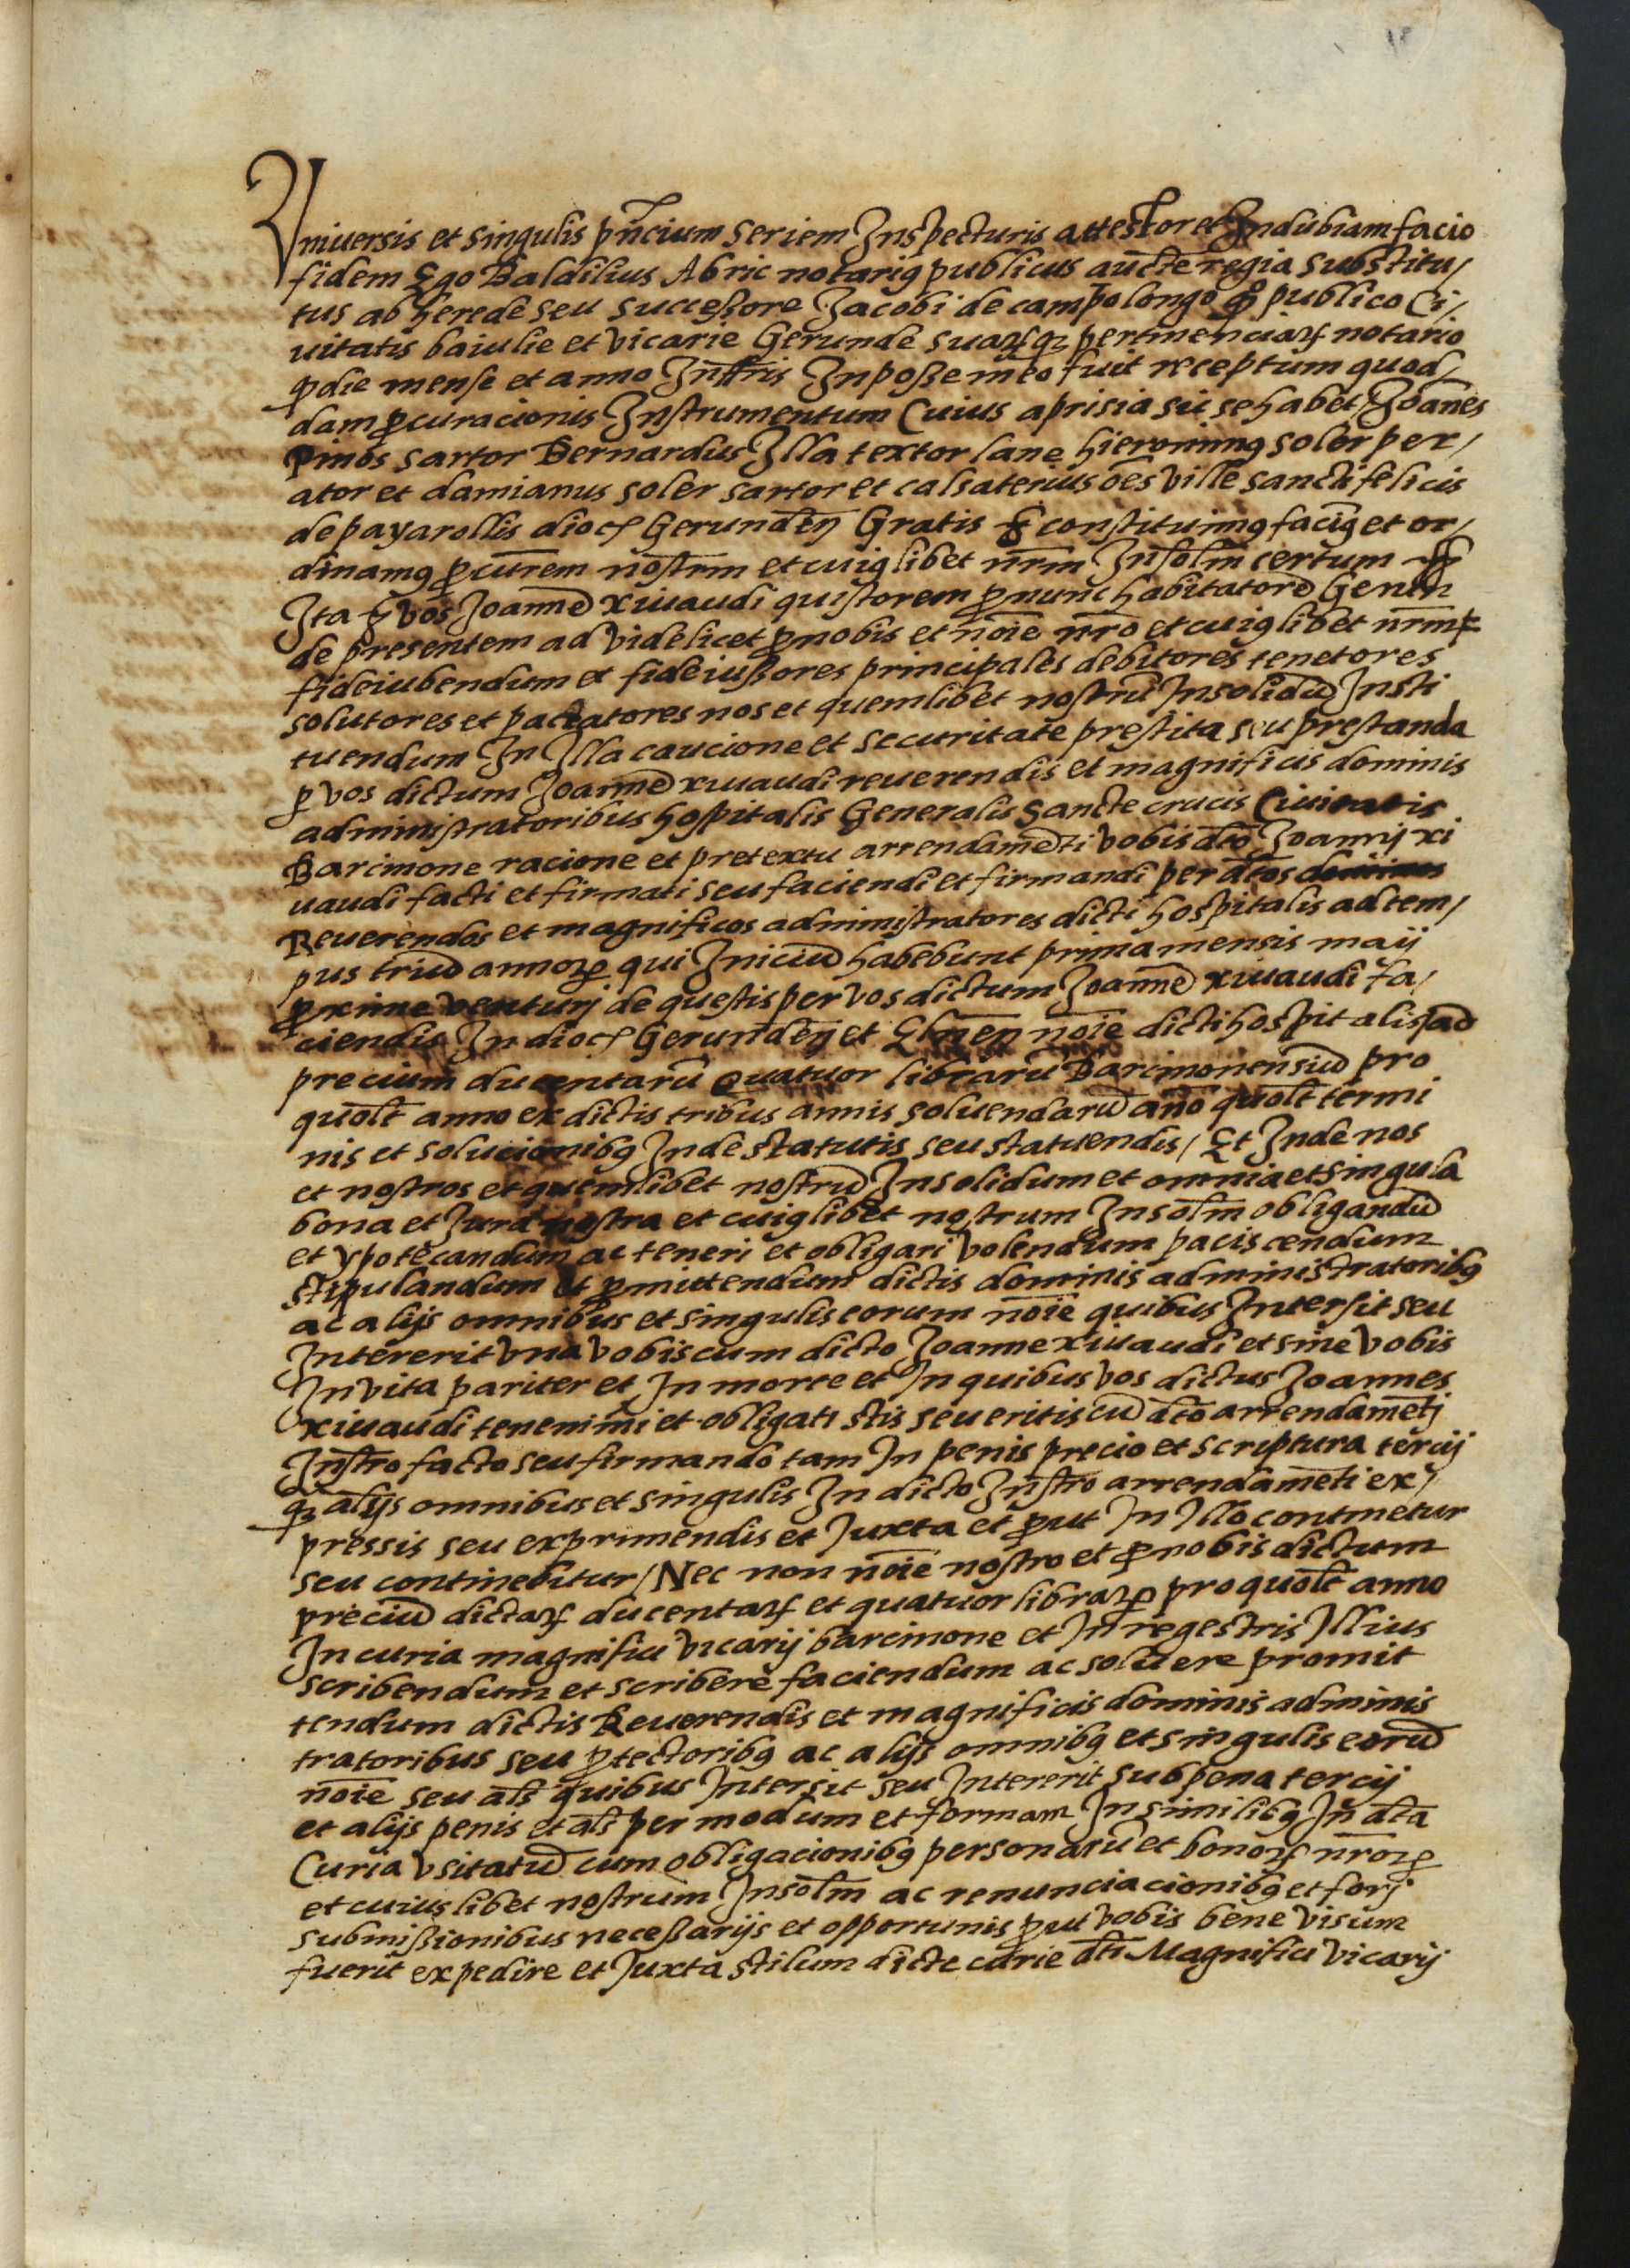 Vniuersis et singulis pñcium seriem Inspecturis attestor et Indubiam facio
fidem Ego Baldilius Abric notariꝰ publicus aucte regia substitu/
tus ab herede seu succeßore Jacobi de campolongo qº publico Ci/
uitatis baiulie et vicarie Gerunde suaꝝ qꝫ pertinenciaꝝ notario
ꝙ die mense et anno Infrᷤis In poße meo fuit receptum quod/
dam ꝓcuracionis Instrumentum Cuius aprisia sic se habet/ Joanes
Pinos sartor Bernardus Illa textor lane hieronimꝰ soler pex/
ator et damianus soler sartor et calsaterius oēs ville sancti felicis
de payarollis dioc Gerunden Gratis &c constituimꝰ facimꝰ et or/
dinamꝰ ꝓcurem nostrum et cuiꝰlibet nrm Insolm certum &c
Ita ꝙ vos Joanne xiuaudi quistorem ꝓ nunc habitatore Gerun
de presentem ad videlicet ꝓ nobis et noie nro et cuiꝰlibet nrm &
fideiubendum et fideiußores principales debitores tenetores
solutores et pacatores nos et quemlibet nostru Insolidu Insti
tuendum In Illa caucione et securitate prestita seu prestanda
ꝑ vos dictum Joanne xiuaudi reuerendis et magnificis dominis
administratoribus hospitalis Generalis sancte crucis Ciuitatis
Barcinone racione et pretextu arrendameti vobis dto Joanni xi
uaudi facti et firmati seu faciendi et firmandi per dtos
Reuerendos et magnificos administratores dicti hospitalis ad tem/
pus triu annoꝝ qui Iniciu habebunt prima mensis maij
ꝓxime venturj de questis per vos dictum Joanne xiuaudi fa/
ciendis In dioc Gerunden et Elnen noie dicti hospitalis ad
precium ducentaru quatuor libraru Barcinonensiu pro
quolt anno ex dictis tribus annis soluendaru ano quolt termi
nis et solucionibꝰ Inde statutis seu statuendis/ Et Inde nos
et nostros et quemlibet nostru Insolidum et omnia et singula
bona et Jura nostra et cuiꝰlibet nostrum Insolm obligandu
et ypotecandum ac teneri et obligari volendum paciscendum
stipulandum et ꝓmittendum dictis dominis administratoribꝰ
ac alijs omnibus et singulis eorum noie quibus Intersit seu
Intererit vna vobiscum dicto Joanne xiuaudi et sine vobis
In vita pariter et In morte et In quibus vos dictus Joannes
xiuaudi tenemini et obligati stis seu eritis cu dto arrendametj
Instro facto seu firmando tam In penis precio et scriptura tercij
qꝫ alijs omnibus et singulis In dicto Instro arrendameti ex/
pressis seu exprimendis et Juxta et ꝓut In Illo continetur
seu continebitur/ Nec non noie nostro et ꝓ nobis dictum
preciu dictaꝝ ducentaꝝ et quatuor libraꝝ pro quolt anno
In curia magnifici vicarij barcinone et In regestris Illius
scribendum et scribere faciendum ac soluere promit
tendum dictis Reuerendis et magnificis dominis adminis
tratoribus seu ꝓtectoribꝰ ac alijs omnibꝰ et singulis eoru
noie seu als quibus Intersit seu Intererit sub pena tercij
et alijs penis et als per modum et formam In similibꝰ In dta
Curia vsitatu cum obligacionibꝰ personaru et bonoꝝ nroꝝ
et cuiuslibet nostrum Insolm ac renunciacionibꝰ et forj
submißionibus neceßarijs et opportunis ꝓut vobis bene visum
fuerit expedire et Juxta stilum dicte curie dti Magnifici vicarij